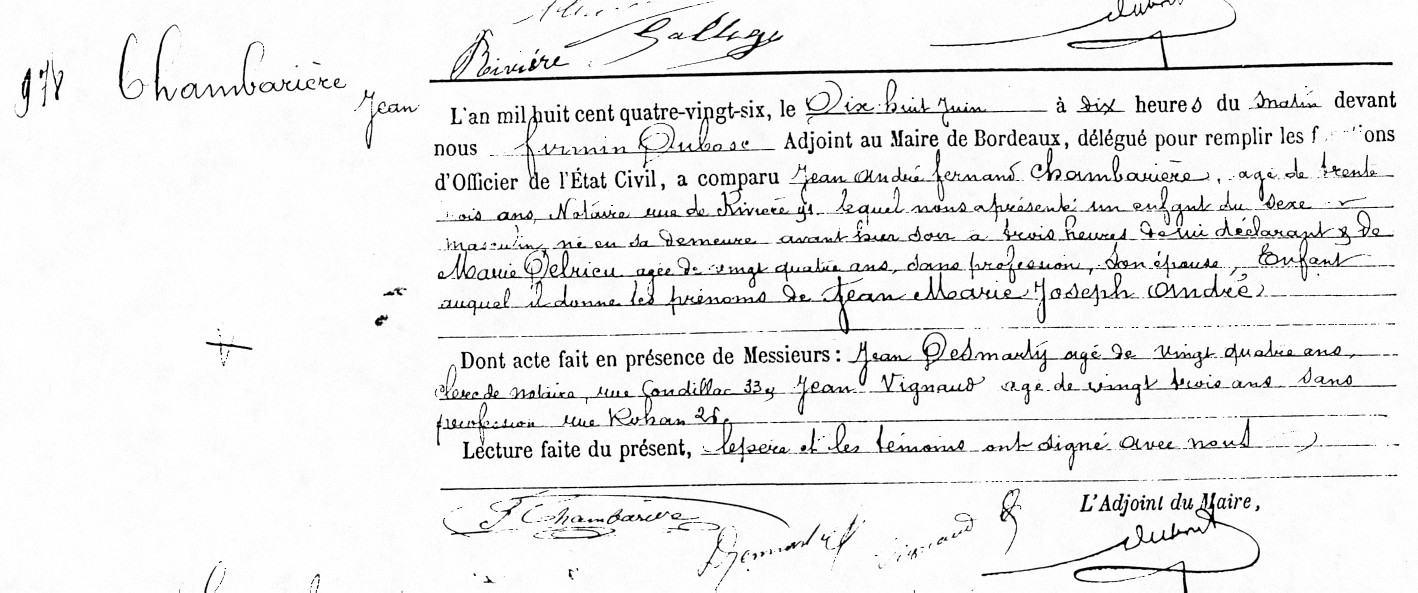 Gallege
Rivière
978 Chambarière
Jean
L'an mil huit cent quatre-vingt-six, le Dix huit Juin à dix heures du matin devant
nous firmin Dubosc Adjoint au Maire de Bordeaux, délégué pour remplir les
d'Officier de l'État Civil, a comparu Jean André fernand Chambarière, agé de trente
ans, Notaire rue de Rivière lequel nous a présenté un enfant du sexe
masculin, né en sa demeure avant hier soir à trois heures de lui déclarant & de
Marie Delrieu agée de vingt quatre ans, sans profession, son épouse, Enfant
auquel il donne les prénoms de Jean Marie Joseph André
Dont acte fait en présence de Messieurs : Jean Desmarty agé de vingt quatre ans,
clerc de notaire, rue Condillac 33 & Jean Vignaud agé de vingt trois ans sans
profession rue Rohan 28.
Lecture faite du présent, le père et les témoins ont signé avec nous
L'Adjoint du Maire,
F Chambarière